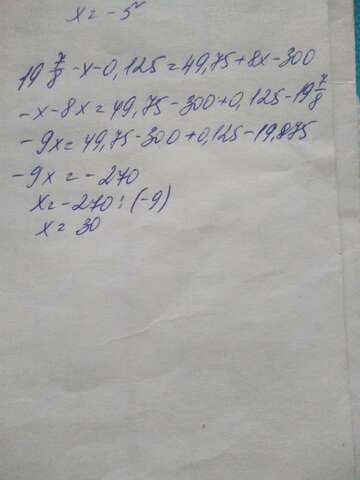 x = -5
19 7/8 - x - 0,125 = 49,75 + 8x - 300
-x - 8x = 49,75 - 300 + 0,125 - 19 7/8
-9x = 49,75 - 300 + 0,125 - 19,875
-9x = -270
x = -270 : (-9)
x = 30